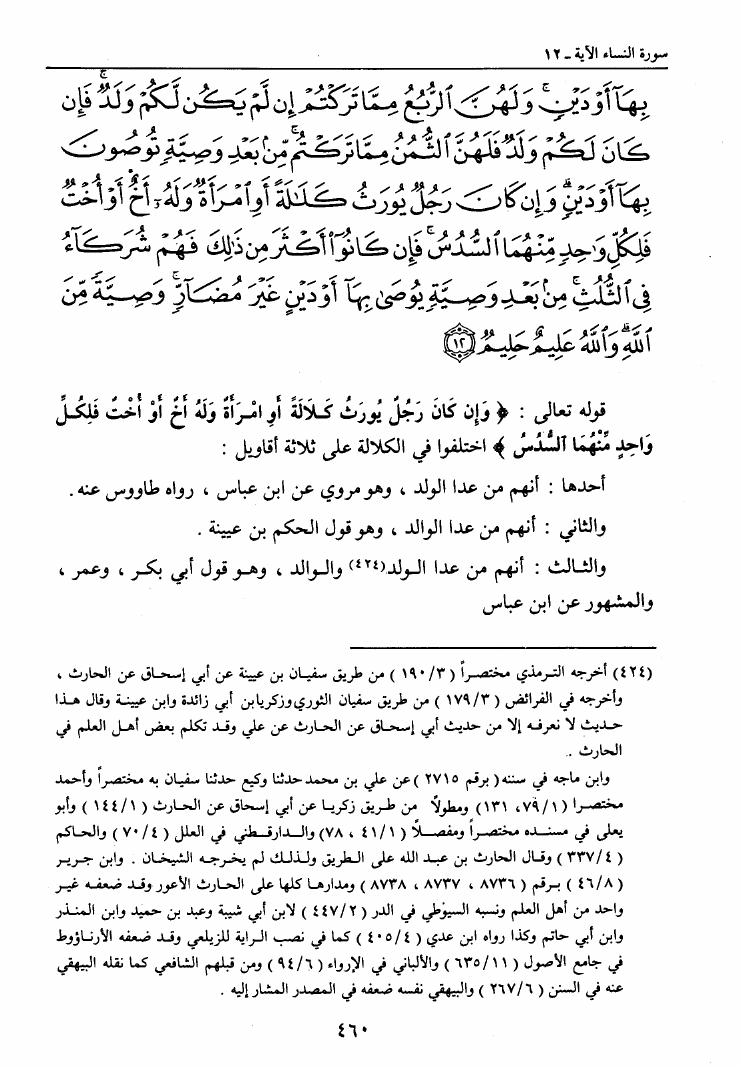 سورة النساء الآية ـ ١٢
بِهَآ أَوْ دَيْنٍ ۚ وَلَهُنَّ ٱلرُّبُعُ مِمَّا تَرَكْتُمْ إِن لَّمْ يَكُن لَّكُمْ وَلَدٌ ۚ فَإِن
كَانَ لَكُمْ وَلَدٌ فَلَهُنَّ ٱلثُّمُنُ مِمَّا تَرَكْتُم ۚ مِّنۢ بَعْدِ وَصِيَّةٍ تُوصُونَ
بِهَآ أَوْ دَيْنٍ ۗ وَإِن كَانَ رَجُلٌ يُورَثُ كَلَـٰلَةً أَوِ ٱمْرَأَةٌ وَلَهُۥٓ أَخٌ أَوْ أُخْتٌ
فَلِكُلِّ وَٰحِدٍ مِّنْهُمَا ٱلسُّدُسُ ۚ فَإِن كَانُوٓا۟ أَكْثَرَ مِن ذَٰلِكَ فَهُمْ شُرَكَآءُ
فِى ٱلثُّلُثِ ۚ مِنۢ بَعْدِ وَصِيَّةٍ يُوصَىٰ بِهَآ أَوْ دَيْنٍ غَيْرَ مُضَآرٍّ ۚ وَصِيَّةً مِّنَ
ٱللَّهِ ۗ وَٱللَّهُ عَلِيمٌ حَلِيمٌ ﴿١٢﴾
قوله تعالى : ﴿ وَإِن كَانَ رَجُلٌ يُورَثُ كَلَالَةً أَوِ امْرَأَةٌ وَلَهُ أَخٌ أَوْ أُخْتٌ فَلِكُلِّ
وَاحِدٍ مِّنْهُمَا ٱلسُّدُسُ ﴾ اختلفوا في الكلالة على ثلاثة أقاويل :
أحدها : أنهم من عدا الولد ، وهو مروي عن ابن عباس ، رواه طاووس عنه .
والثاني : أنهم من عدا الوالد ، وهو قول الحكم بن عيينة .
والثالث : أنهم من عدا الولد(٤٢٤) والوالد ، وهو قول أبي بكر ، وعمر ،
والمشهور عن ابن عباس
(٤٢٤) أخرجه الترمذي مختصراً ( ١٩٠/٣ ) من طريق سفيان بن عيينة عن أبي إسحاق عن الحارث ،
وأخرجه في الفرائض ( ١٧٩/٣ ) من طريق سفيان الثوري وزكريا بن أبي زائدة وابن عيينة وقال هذا
حديث لا نعرفه إلا من حديث أبي إسحاق عن الحارث عن علي وقد تكلم بعض أهل العلم في
الحارث .
وابن ماجه في سننه ( برقم ٢٧١٥ ) عن علي بن محمد حدثنا وكيع حدثنا سفيان به مختصراً وأحمد
مختصرا ( ٧٩/١، ١٣١) ومطولاً من طريق زكريا عن أبي إسحاق عن الحارث ( ١٤٤/١ ) وأبو
يعلى في مسنده مختصراً ومفصلاً ( ٤١/١ ، ٧٨) والدارقطني في العلل ( ٧٠/٤ ) والحاكم
( ٣٣٧/٤ ) وقال الحارث بن عبد الله على الطريق ولذلك لم يخرجه الشيخان . وابن جرير
( ٤٦/٨ ) برقم ( ٨٧٣٦ ، ٨٧٣٧ ، ٨٧٣٨ ) ومدارها كلها على الحارث الأعور وقد ضعفه غير
واحد من أهل العلم ونسبه السيوطي في الدر ( ٤٤٧/٢ ) لابن أبي شيبة وعبد بن حميد وابن المنذر
وابن أبي حاتم وكذا رواه ابن عدي ( ٤٠٥/٤ ) كما في نصب الراية للزيلعي وقد ضعفه الأرناؤوط
في جامع الأصول ( ٦٣٥/١١ ) والألباني في الإرواء ( ٩٤/٦ ) ومن قبلهم الشافعي كما نقله البيهقي
عنه في السنن ( ٢٦٧/٦ ) والبيهقي نفسه ضعفه في المصدر المشار إليه .
٤٦٠